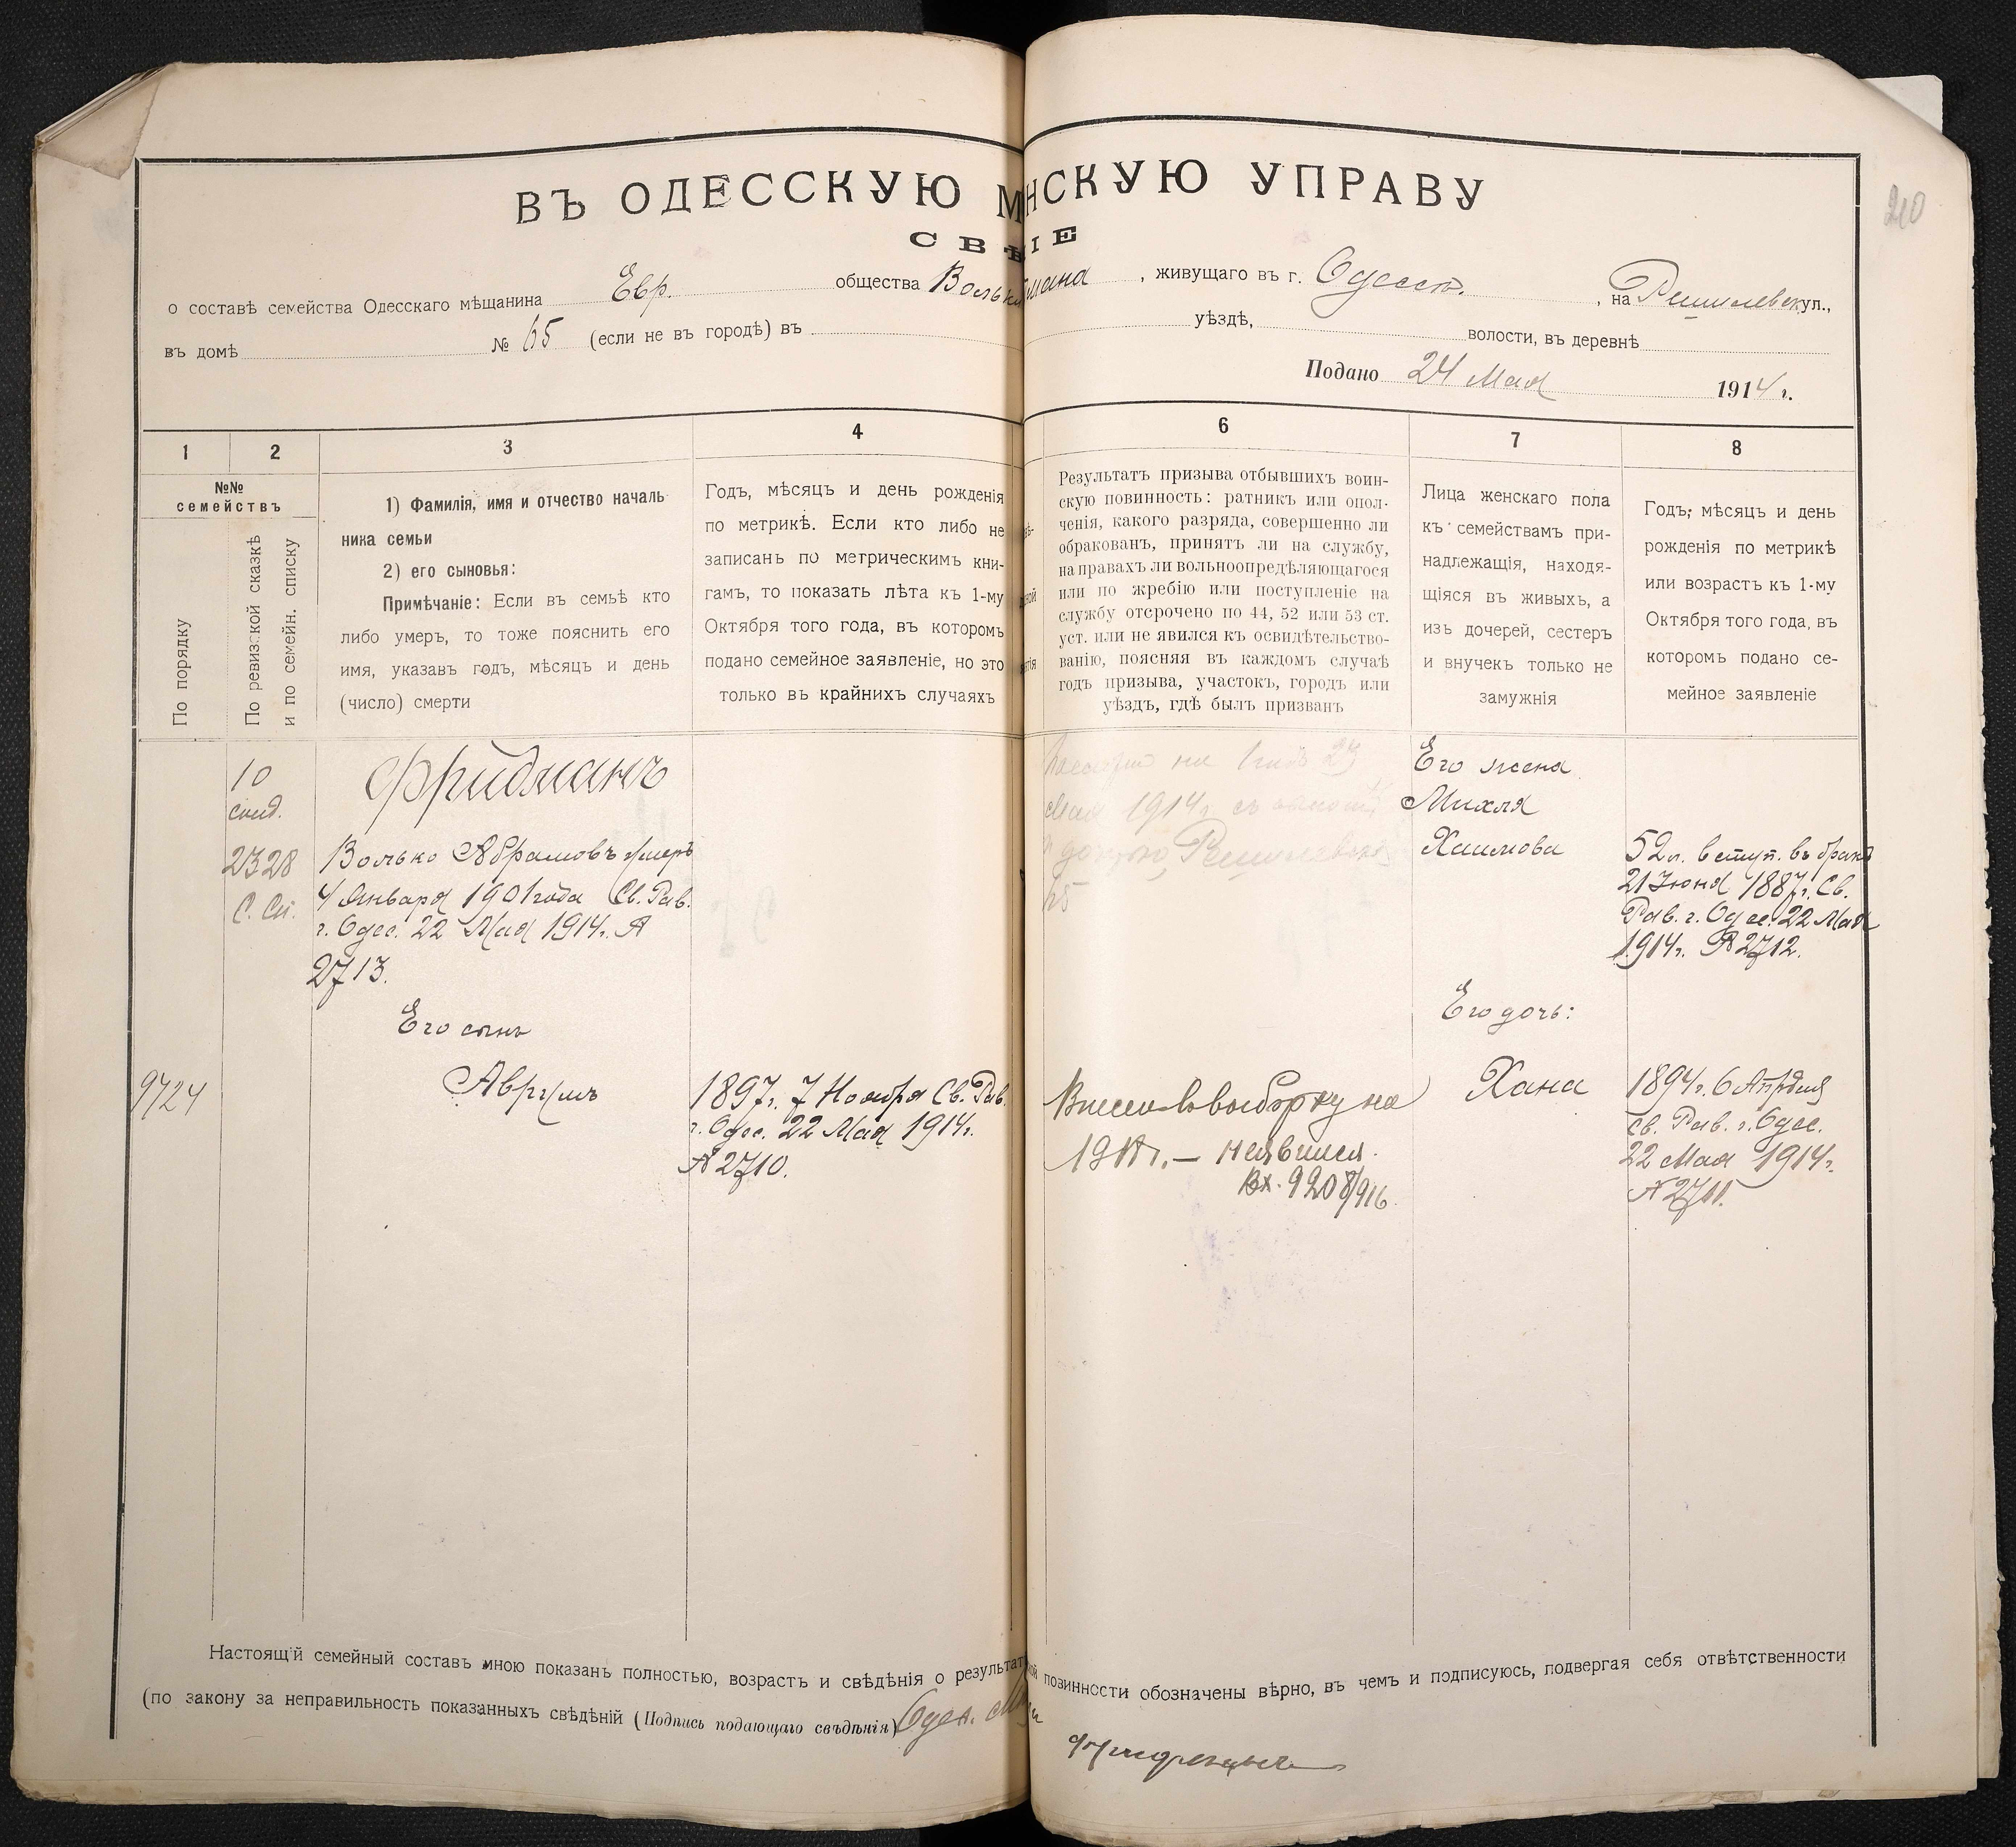 210
ВЪ ОДЕССКУЮ М НСКУЮ УПРАВУ
СВѢ ІЕ
о составѣ семейства Одесскаго мѣщанина Евр. общества , живущаго въ г. Одессѣ. , на Ришельевск ул.,
въ домѣ № 65 (если не въ городѣ) въ уѣздѣ, волости, въ деревнѣ
Подано 24 Мая 1914 г.
1 2 3 4 6 7 8
№№
семействъ
По порядку
По ревизской сказкѣ
и по семейн. списку
1) Фамилія, имя и отчество началь
ника семьи
2) его сыновья:
Примѣчаніе: Если въ семьѣ кто
либо умеръ, то тоже пояснить его
имя, указавъ годъ, мѣсяцъ и день
(число) смерти
Годъ, мѣсяцъ и день рожденія
по метрикѣ. Если кто либо не
записанъ по метрическимъ кни-
гамъ, то показать лѣта къ 1-му
Октября того года, въ которомъ
подано семейное заявленіе, но это
только въ крайнихъ случаяхъ
Результатъ призыва отбывшихъ воин-
скую повинность: ратникъ или опол-
ченія, какого разряда, совершенно ли
обракованъ, принятъ ли на службу,
на правахъ ли вольноопредѣляющагося
или по жребію или поступленіе на
службу отсрочено по 44, 52 или 53 ст.
уст. или не явился къ освидѣтельство-
ванію, поясняя въ каждомъ случаѣ
годъ призыва, участокъ, городъ или
уѣздъ, гдѣ былъ призванъ
Лица женскаго пола
къ семействамъ при-
надлежащія, находя-
щіяся въ живыхъ, а
изъ дочерей, сестеръ
и внучекъ только не
замужнія
Годъ, мѣсяцъ и день
рожденія по метрикѣ
или возрастъ къ 1-му
Октября того года, въ
которомъ подано се-
мейное заявленіе
10
2328
С. Сп.
Фридманъ
Волько Абрамовъ умеръ
4 Января 1901 года Св. Рав.
г. Одес. 22 Мая 1914 г. №
2713.
Его сынъ
9724
Аврумъ
1897 г. 7 Ноября Св. Рав.
г. Одес. 22 Мая 1914 г.
№ 2710.
на 1 годъ 24
Мая 1914 г. съ
65
въ выборку на
191 г. — неявился.
Вх. 9208/916
Его жена
Михля
Хаимова
52 л. вступ. въ бракъ
21 Іюня 1887 г. Св.
Рав. г. Одес. 22 Мая
1914 г. № 2712.
Его дочь:
Хана
1894 г. 6 Апрѣля
Св. Рав. г. Одес.
22 Мая 1914 г.
№ 2711.
Настоящій семейный составъ мною показанъ полностью, возрастъ и свѣдѣнія о результат повинности обозначены вѣрно, въ чемъ и подписуюсь, подвергая себя отвѣтственности
(по закону за неправильность показанныхъ свѣдѣній (Подпись подающаго свѣдѣнія) Одес.